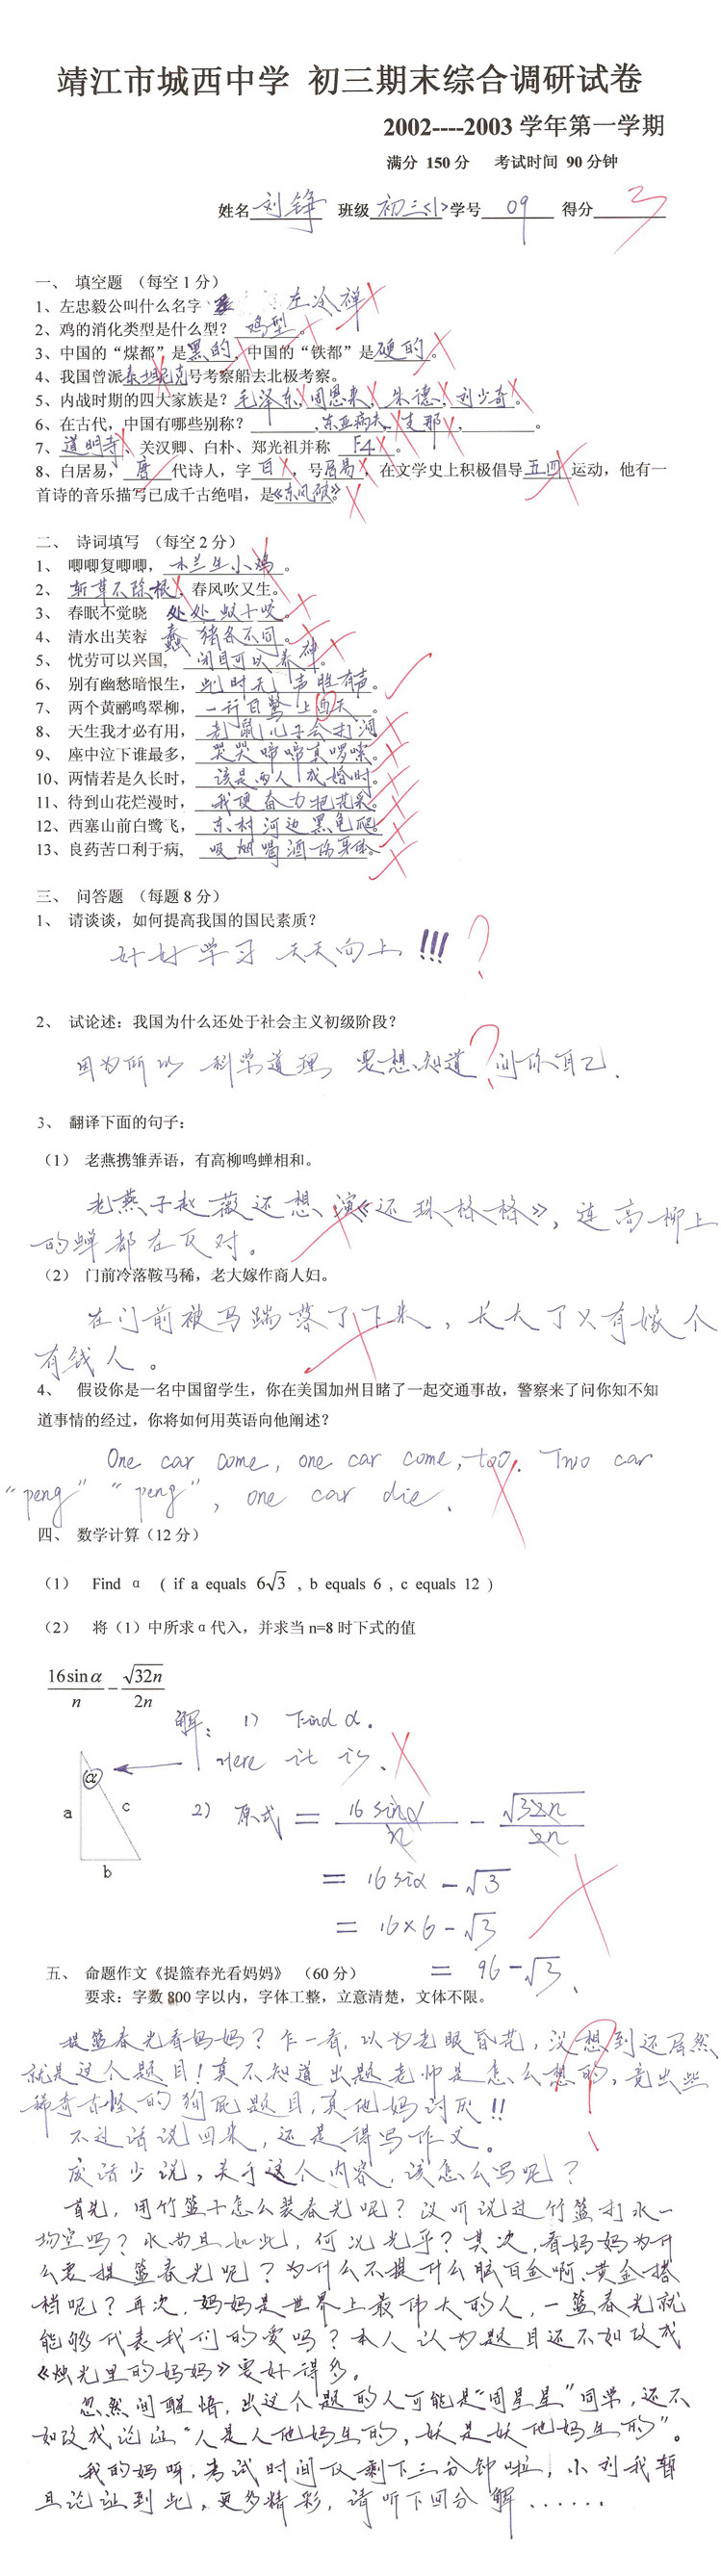 靖江市城西中学 初三期末综合调研试卷
2002----2003 学年第一学期
满分 150 分 考试时间 90 分钟
姓名 刘铮 班级 初三<1> 学号 09 得分 3
一、 填空题 （每空 1 分）
1、左忠毅公叫什么名字 左冷禅
2、鸡的消化类型是什么型？ 鸡型 。
3、中国的“煤都”是黑的，中国的“铁都”是硬的。
4、我国曾派泰坦尼克号考察船去北极考察。
5、内战时期的四大家族是？毛泽东，周恩来，朱德，刘少奇。
6、在古代，中国有哪些别称？ ，东亚病夫，支那， 。
7、道明寺、关汉卿、白朴、郑光祖并称 F4 。
8、白居易，唐代诗人，字白，号居易，在文学史上积极倡导五四运动，他有一
首诗的音乐描写已成千古绝唱，是《东风破》。
二、 诗词填写 （每空 2 分）
1、 唧唧复唧唧，木兰生小鸡。
2、 斩草不除根，春风吹又生。
3、 春眠不觉晓 处处蚊子咬。
4、 清水出芙蓉 蠢猪各不同。
5、 忧劳可以兴国， 闭目可以养神。
6、 别有幽愁暗恨生，此时无声胜有声。
7、 两个黄鹂鸣翠柳，一行白鹭上西天。
8、 天生我才必有用，老鼠儿子会打洞
9、 座中泣下谁最多，哭哭啼啼真啰嗦。
10、两情若是久长时，该是两人成婚时。
11、待到山花烂漫时，我便奋力把花采。
12、西塞山前白鹭飞，东村河边黑龟爬。
13、良药苦口利于病，吸烟喝酒伤身体。
三、 问答题 （每题 8 分）
1、 请谈谈，如何提高我国的国民素质？
好好学习 天天向上 !!! ?
2、 试论述：我国为什么还处于社会主义初级阶段？
因为所以 科学道理 要想知道 问你自己. ?
3、 翻译下面的句子：
（1） 老燕携雏弄语，有高柳鸣蝉相和。
老燕子赵薇还想演《还珠格格》，连高柳上
的蝉都在反对。
（2） 门前冷落鞍马稀，老大嫁作商人妇。
在门前被马踹落了下来，长大了只有嫁个
有钱人。
4、 假设你是一名中国留学生，你在美国加州目睹了一起交通事故，警察来了问你知不知
道事情的经过，你将如何用英语向他阐述？
One car come, one car come, too. Two car
“peng” “peng”, one car die.
四、 数学计算（12 分）
（1） Find α ( if a equals 6√3 , b equals 6 , c equals 12 )
（2） 将（1）中所求 α 代入，并求当 n=8 时下式的值
16sinα/n - √32n/2n
解： 1) Find α.
Here it is.
α
a c
b
2) 原式 = 16 sinα/n - √32n/2n
= 16 siα - √3
= 16×6 - √3
= 96 - √3.
五、 命题作文《提篮春光看妈妈》 （60 分）
要求：字数 800 字以内，字体工整，立意清楚，文体不限。
提篮春光看妈妈？乍一看，以为老眼昏花，没想到还居然
就是这个题目！真不知道出题老师是怎么想的，竟出些
稀奇古怪的狗屁题目，真他妈讨厌!!
不过话说回来，还是得写作文。
废话少说，关于这个内容，该怎么写呢？
首先，用竹篮子怎么装春光呢？没听说过竹篮打水一
场空吗？水尚且如此，何况光乎？其次，看妈妈为什
么要提篮春光呢？为什么不提什么脑白金啊、黄金搭
档呢？再次，妈妈是世界上最伟大的人，一篮春光就
能够代表我们的爱吗？本人认为题目还不如改成
《烛光里的妈妈》要好得多。
忽然间醒悟，出这个题的人可能是“周星星”同学，还不
如改成论证“人是人他妈生的，妖是妖他妈生的”。
我的妈呀，考试时间仅剩下三分钟啦，小刘我暂
且论证到此，更多精彩，请听下回分解......